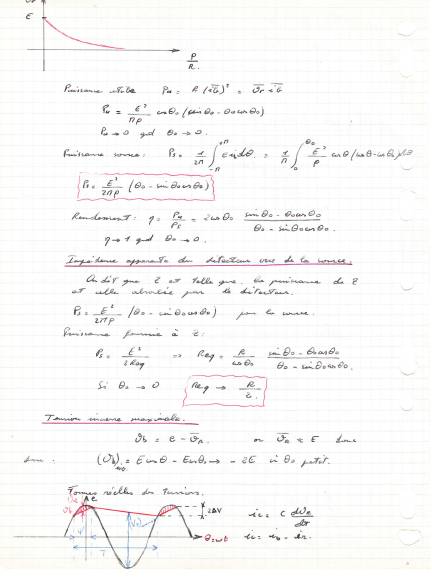 E
ρ/R
Puissance utile Pu = R (i̅G̅)² = V̅r̅ i̅G̅
Pu = E²/πρ cosθ₀ (sinθ₀ - θ₀cosθ₀)
Pu → 0 qd θ₀ → 0.
Puissance source: Ps = 1/2π ∫ e i dθ = 1/π ∫₀^θ₀ E²/ρ cosθ (cosθ - cosθ₀) dθ
Ps = E²/2πρ (θ₀ - sinθ₀cosθ₀)
Rendement: η = Pu/Ps = 2cosθ₀ (sinθ₀ - θ₀cosθ₀)/(θ₀ - sinθ₀cosθ₀)
η → 1 qd θ₀ → 0.
Impédance apparente du détecteur vue de la source.
On dit que Z est telle que la puissance de Z
est celle absorbée par le détecteur.
Ps = E²/2πρ (θ₀ - sinθ₀cosθ₀) par la source.
Puissance fournie à Z:
Ps = E²/2Req ⇒ Req = R/cosθ₀ (sinθ₀ - θ₀cosθ₀)/(θ₀ - sinθ₀cosθ₀).
Si θ₀ → 0 Req → R/2.
Tension inverse maximale.
Vb = e - V̅r̅. or V̅r̅ ≈ E donc
donc. = E cosθ - E cosθ₀ → -2E si θ₀ petit.
Formes réelles des tensions.
e 2ΔV ic = C dVc/dt
θ = ωt
T